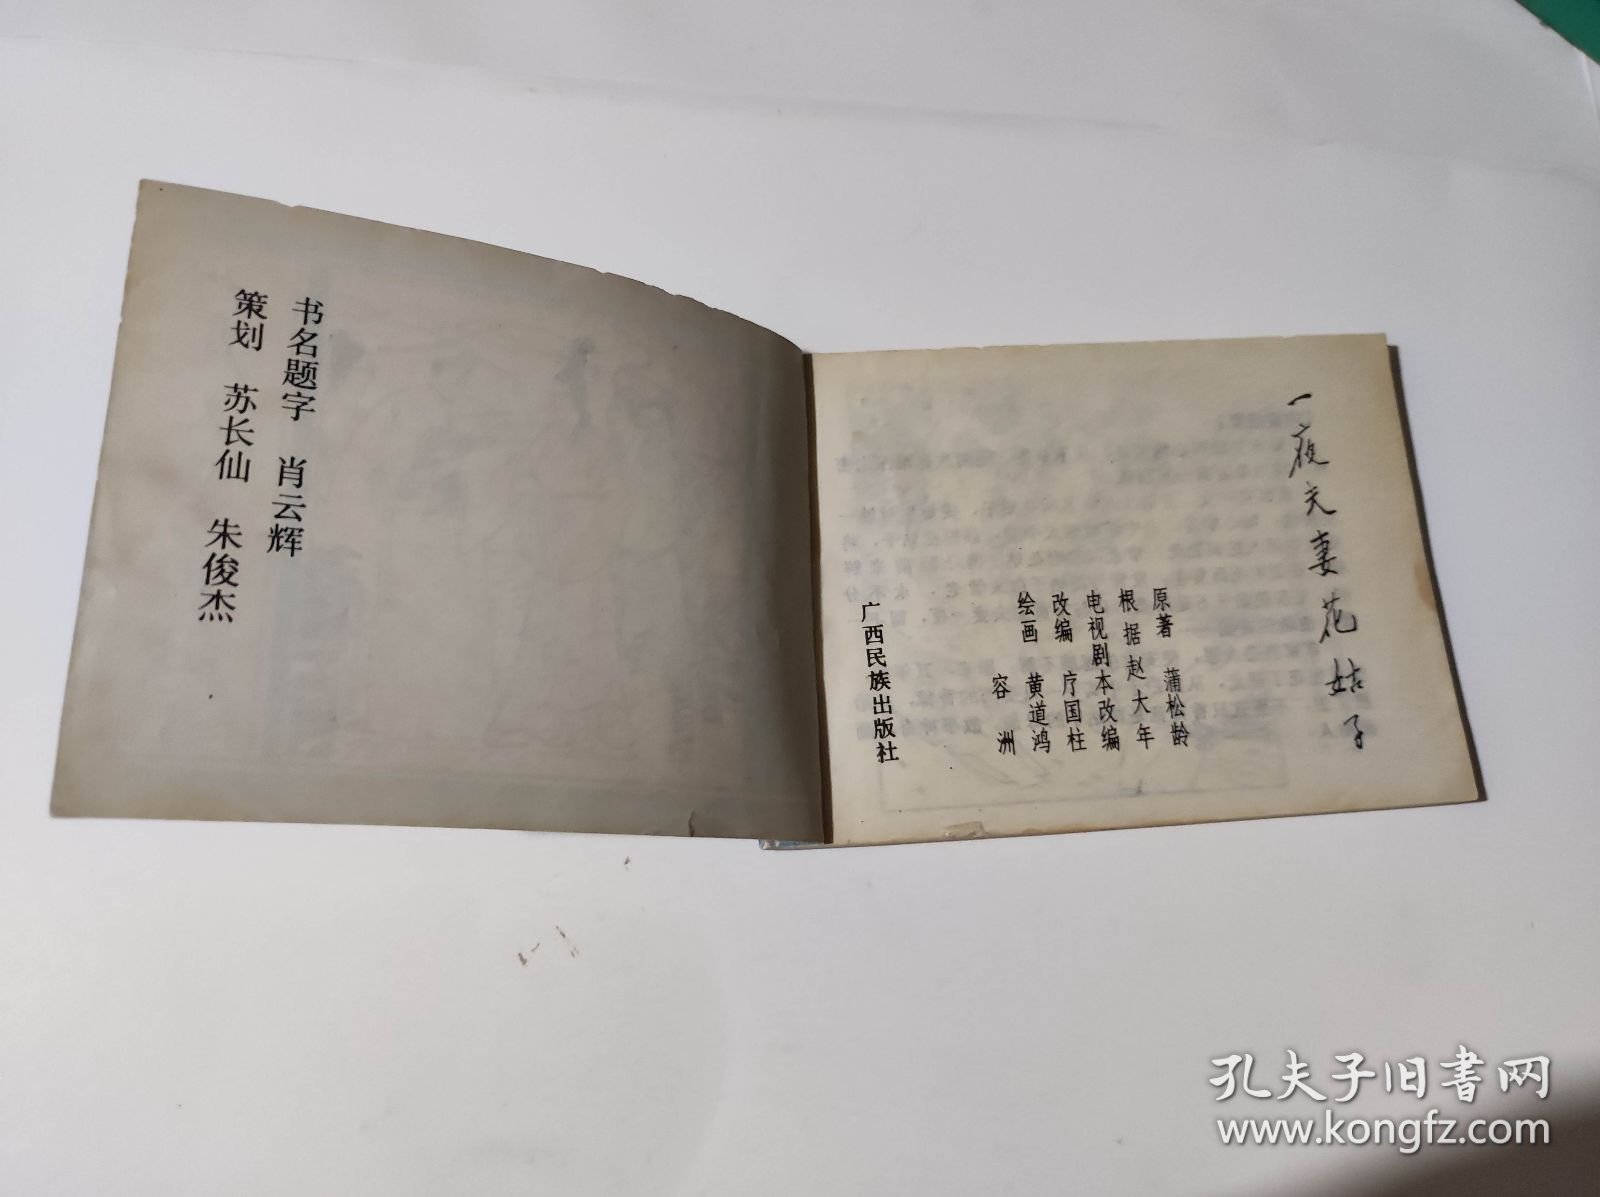 书名题字　肖云辉
策划　苏长仙　朱俊杰
一夜夫妻花姑子
原著　蒲松龄
根据赵大年
电视剧本改编
改编　庁国柱
绘画　黄道鸿
容洲
广西民族出版社
孔夫子旧書网
www.kongfz.com